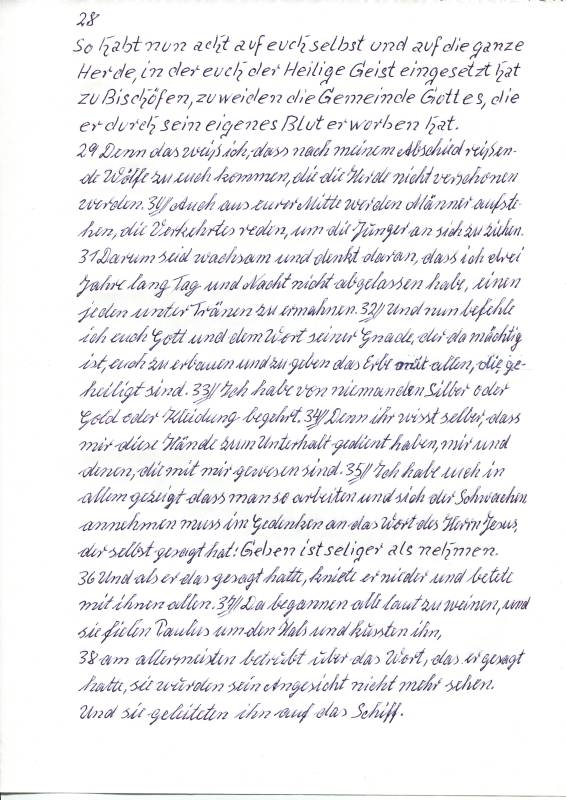 28
So habt nun acht auf euch selbst und auf die ganze
Herde, in der euch der Heilige Geist eingesetzt hat
zu Bischöfen, zu weiden die Gemeinde Gottes, die
er durch sein eigenes Blut erworben hat.
29 Denn das weiß ich, dass nach meinem Abschied reißen-
de Wölfe zu euch kommen, die die Herde nicht verschonen
werden. 30// Auch aus eurer Mitte werden Männer aufste-
hen, die Verkehrtes reden, um die Jünger an sich zu ziehen.
31 Darum seid wachsam und denkt daran, dass ich drei
Jahre lang Tag und Nacht nicht abgelassen habe, einen
jeden unter Tränen zu ermahnen. 32// Und nun befehle
ich euch Gott und dem Wort seiner Gnade, der da mächtig
ist, euch zu erbauen und zu geben das Erbe mit allen, die ge-
heiligt sind. 33// Ich habe von niemanden Silber oder
Gold oder Kleidung begehrt. 34// Denn ihr wisst selber, dass
mir diese Hände zum Unterhalt gedient haben, mir und
denen, die mit mir gewesen sind. 35// Ich habe euch in
allem gezeigt dass man so arbeiten und sich der Schwachen
annehmen muss im Gedenken an das Wort des Herrn Jesus,
der selbst gesagt hat: Geben ist seliger als nehmen.
36 Und als er das gesagt hatte, kniete er nieder und betete
mit ihnen allen. 37// Da begannen alle laut zu weinen, und
sie fielen Paulus um den Hals und küssten ihn,
38 am allermeisten betrübt über das Wort, das er gesagt
hatte, sie würden sein Angesicht nicht mehr sehen.
Und sie geleiteten ihn auf das Schiff.